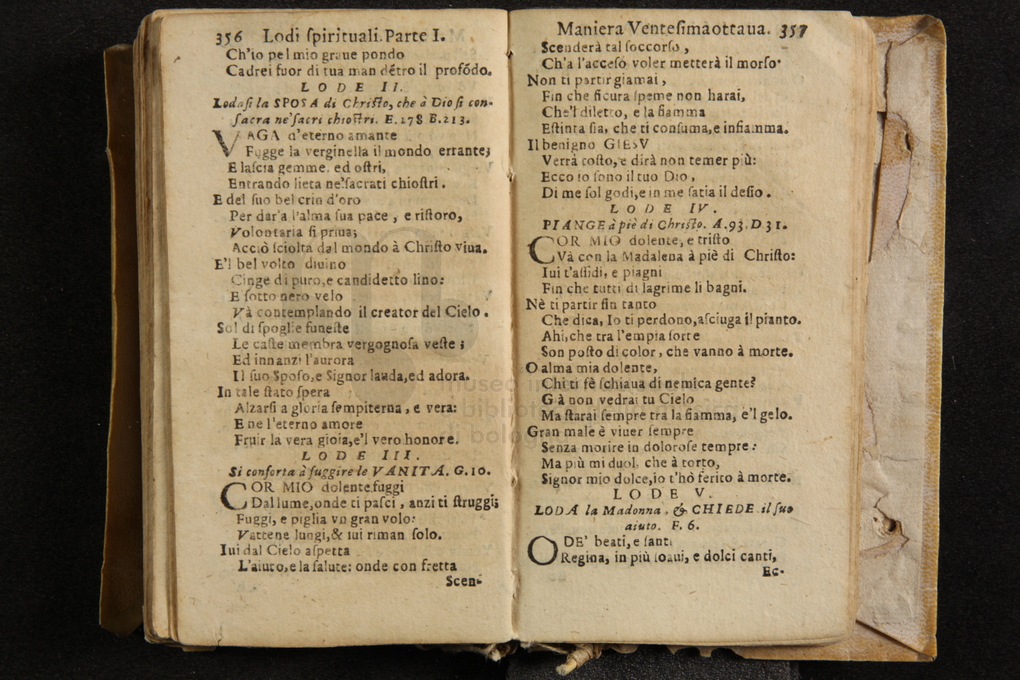 356 Lodi ſpirituali. Parte I.
Ch'io pel mio graue pondo
Cadrei fuor di tua man détro il profódo.
LODE II.
Lodaſi la SPOSA di Chriſto, che à Dio ſi con-
ſacra ne' ſacri chioſtri. E. 278 B. 213.
VAGA d'eterno amante
Fugge la verginella il mondo errante;
E laſcia gemme, ed oſtri,
Entrando lieta ne' ſacrati chioſtri.
E del ſuo bel crin d'oro
Per dar'a l'alma ſua pace, e riſtoro,
Volontaria ſi priua;
Acciò ſciolta dal mondo à Chriſto viua.
E'l bel volto diuino
Cinge di puro, e candidetto lino:
E ſotto nero velo
Và contemplando il creator del Cielo.
Sol di ſpoglie funeſte
Le caſte membra vergognoſa veſte;
Ed innanzi l'aurora
Il ſuo Spoſo, e Signor lauda, ed adora.
In tale ſtato ſpera
Alzarſi a gloria ſempiterna, e vera:
E ne l'eterno amore
Fruir la vera gioia, e'l vero honore.
LODE III.
Si conforta à fuggire le VANITA. G. 10.
COR MIO dolente fuggi
Dal lume, onde ti paſci, anzi ti ſtruggi;
Fuggi, e piglia vn gran volo:
Vattene lungi, & iui riman ſolo.
Iui dal Cielo aſpetta
L'aiuto, e la ſalute: onde con fretta
Scen-
Maniera Venteſimaottaua. 357
Scenderà tal ſoccorſo,
Ch'a l'acceſo voler metterà il morſo.
Non ti partir giamai,
Fin che ſicura ſpeme non harai,
Che'l diletto, e la fiamma
Eſtinta ſia, che ti conſuma, e infiamma.
Il benigno GIESV
Verrà toſto, e dirà non temer più:
Ecco io ſono il tuo Dio,
Di me ſol godi, e in me ſatia il deſio.
LODE IV.
PIANGE à piè di Chriſto. A. 93. D 31.
COR MIO dolente, e triſto
Và con la Madalena à piè di Chriſto:
Iui t'aſſidi, e piagni
Fin che tutti di lagrime li bagni.
Nè ti partir fin tanto
Che dica, Io ti perdono, aſciuga il pianto.
Ahi, che tra l'empia ſorte
Son poſto di color, che vanno à morte.
O alma mia dolente,
Chi ti fè ſchiaua di nemica gente?
Già non vedrai tu Cielo
Ma ſtarai ſempre tra la fiamma, e'l gelo.
Gran male è viuer ſempre
Senza morire in doloroſe tempre:
Ma più mi duol, che à torto,
Signor mio dolce, io t'hò ferito à morte.
LODE V.
LODA la Madonna, & CHIEDE il ſuo
aiuto. F. 6.
O DE' beati, e ſanti
Regina, in più ſoaui, e dolci canti,
Ec-